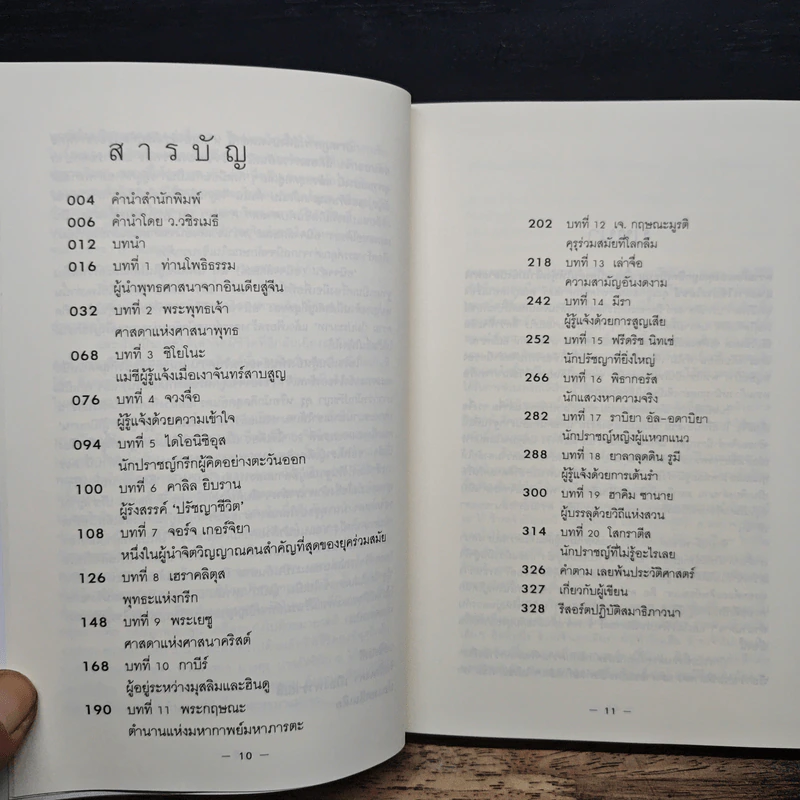 สารบัญ
004 คำนำสำนักพิมพ์
006 คำนำโดย ว.วชิรเมธี
012 บทนำ
016 บทที่ 1 ท่านโพธิธรรม
ผู้นำพุทธศาสนาจากอินเดียสู่จีน
032 บทที่ 2 พระพุทธเจ้า
ศาสดาแห่งศาสนาพุทธ
068 บทที่ 3 ชิโยโนะ
แม่ชีผู้รู้แจ้งเมื่อเงาจันทร์สาบสูญ
076 บทที่ 4 จวงจื่อ
ผู้รู้แจ้งด้วยความเข้าใจ
094 บทที่ 5 ไดโอนิซิอุส
นักปราชญ์กรีกผู้คิดอย่างตะวันออก
100 บทที่ 6 คาลิล ยิบราน
ผู้รังสรรค์ 'ปรัชญาชีวิต'
108 บทที่ 7 จอร์จ เกอร์จิยา
หนึ่งในผู้นำจิตวิญญาณคนสำคัญที่สุดของยุคร่วมสมัย
126 บทที่ 8 เฮราคลิตุส
พุทธะแห่งกรีก
148 บทที่ 9 พระเยซู
ศาสดาแห่งศาสนาคริสต์
168 บทที่ 10 กาบีร์
ผู้อยู่ระหว่างมุสลิมและฮินดู
190 บทที่ 11 พระกฤษณะ
ตำนานแห่งมหากาพย์มหาภารตะ
– 10 –
202 บทที่ 12 เจ. กฤษณะมูรติ
คุรุร่วมสมัยที่โลกลืม
218 บทที่ 13 เล่าจื๊อ
ความสามัญอันงดงาม
242 บทที่ 14 มีรา
ผู้รู้แจ้งด้วยการสูญเสีย
252 บทที่ 15 ฟรีดริช นิทเช่
นักปรัชญาที่ยิ่งใหญ่
266 บทที่ 16 พิธากอรัส
นักแสวงหาความจริง
282 บทที่ 17 ราบิยา อัล-อดาบิยา
นักปราชญ์หญิงผู้แหวกแนว
288 บทที่ 18 ยาลาลุดดิน รูมี
ผู้รู้แจ้งด้วยการเต้นรำ
300 บทที่ 19 ฮาคิม ซานาย
ผู้บรรลุด้วยวิถีแห่งสวน
314 บทที่ 20 โสกราตีส
นักปราชญ์ที่ไม่รู้อะไรเลย
326 คำตาม เลยพ้นประวัติศาสตร์
327 เกี่ยวกับผู้เขียน
328 รีสอร์ตปฏิบัติสมาธิภาวนา
– 11 –